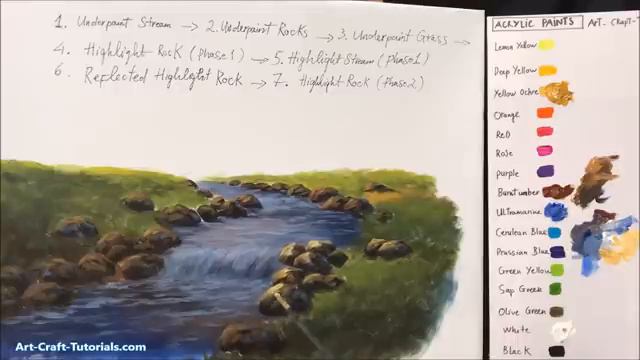 1. Underpaint Stream → 2. Underpaint Rocks → 3. Underpaint Grass →
4. Highlight Rock (Phase 1) → 5. Highlight Stream (Phase 1)
6. Reflected Highlight Rock → 7. Highlight Rock (Phase 2)
ACRYLIC PAINTS Art-Craft-
Lemon Yellow
Deep Yellow
Yellow Ochre
Orange
Red
Rose
Purple
Burntumber
Ultramarine
Cerulean Blue
Prussian Blue
Green Yellow
Sap Green
Olive Green
White
Black
Art-Craft-Tutorials.com